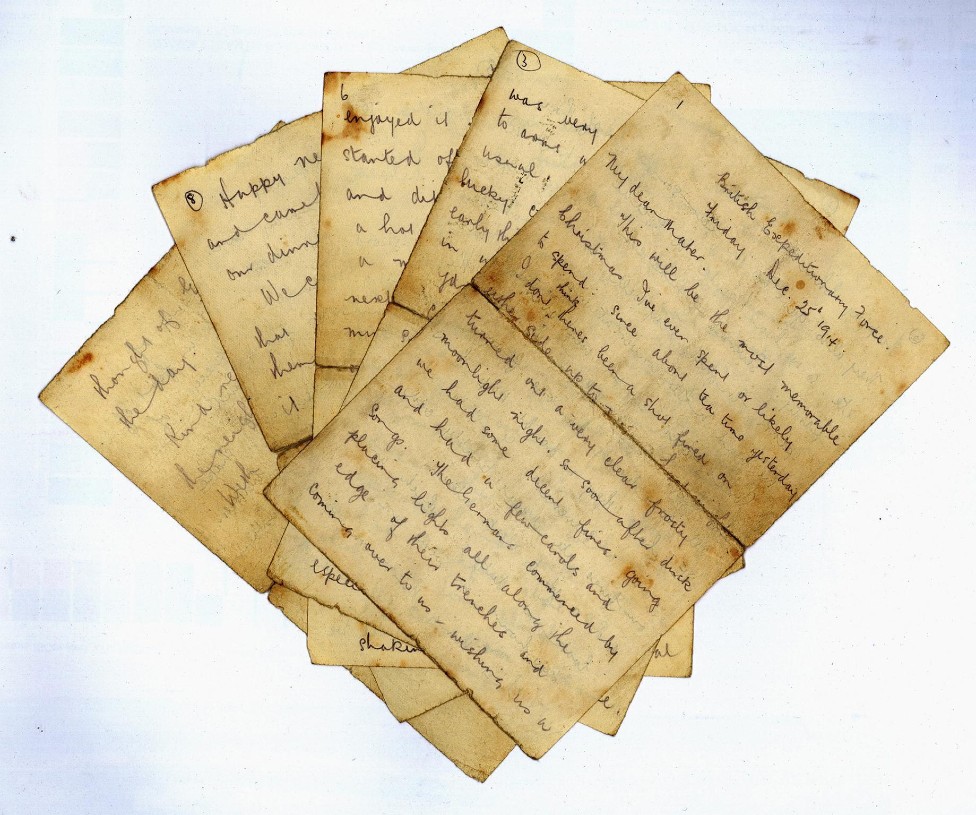 1
British Expeditionary Force.
Friday Dec. 25th 1914.
My dear Mater.
This will be the most memorable
Christmas I've ever spent or likely
to spend: since about tea time yesterday
I don't think theres been a shot fired on
either side up to
turned out a very clear frosty
moonlight night, so soon after dusk
we had some decent fires going
and had a few carols and
songs. The Germans commenced by
placing lights all along the
edge of their trenches and
coming over to us – wishing us a
3
was very
to our
usual
lucky
early th
in
yd
6
enjoyed it.
started off
and di
a hot
a
next
mu
8
Happy ne
and came
our dinn
We c
that
them
it
thought of
the day.
Kind re
With
espec
shakin
al
e.